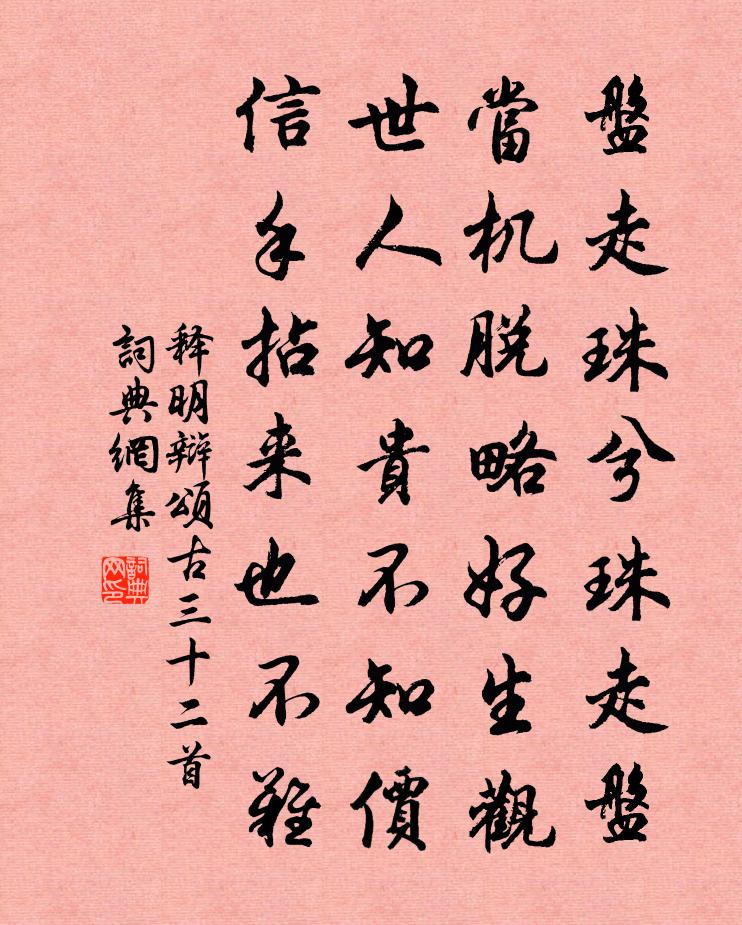 盤走珠兮珠走盤
當机脱略好生觀
世人知貴不知價
信手拈来也不難
释明辯頌古三十二首
詞典網集
詞典网印